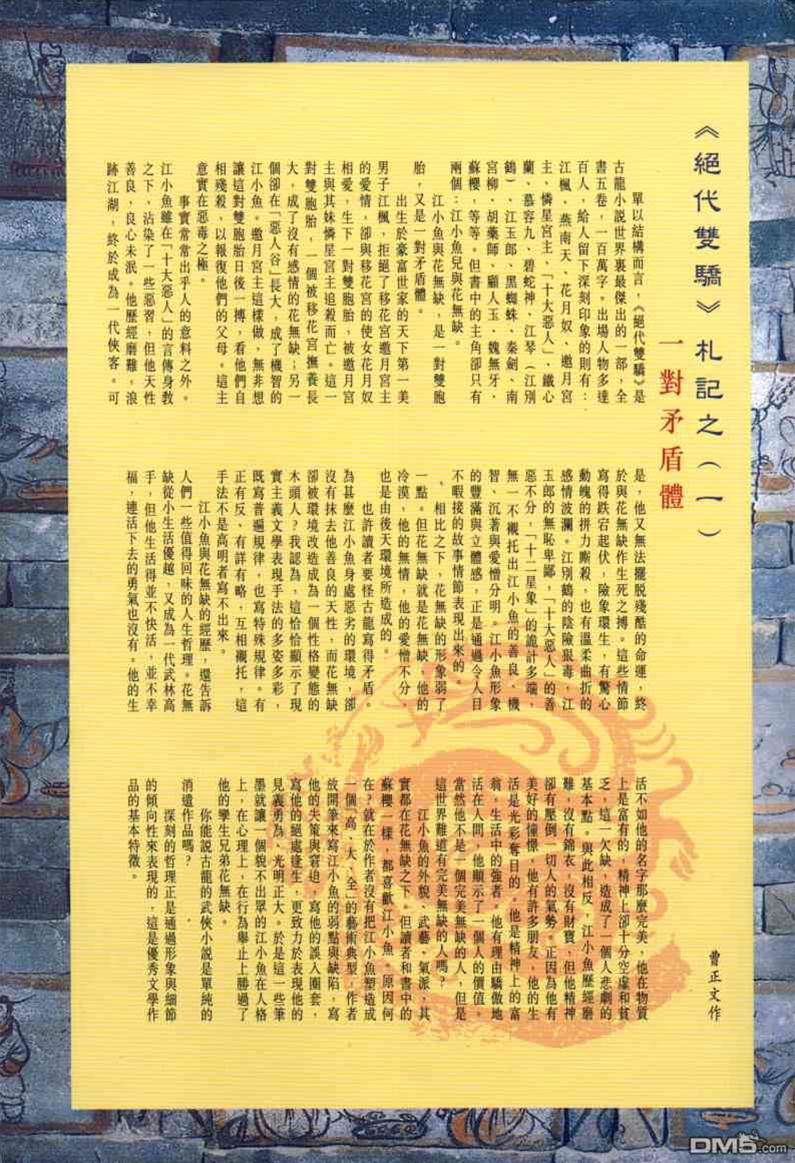 《絕代雙驕》札記之(一)
一對矛盾體
曹正文作
單以結構而言，《絕代雙驕》是
古龍小說世界裏最傑出的一部，全
書五卷，一百萬字。出場人物多達
百人，給人留下深刻印象的則有：
江楓、燕南天、花月奴、邀月宮
主、憐星宮主、「十大惡人」、鐵心
蘭、慕容九、碧蛇神、江琴（江別
鶴）、江玉郎、黑蜘蛛、秦劍、南
宮柳、胡藥師、顧人玉、魏無牙、
蘇櫻，等等。但書中的主角卻只有
兩個：江小魚兒與花無缺。
江小魚與花無缺，是一對雙胞
胎，又是一對矛盾體。
出生於豪富世家的天下第一美
男子江楓，拒絕了移花宮邀月宮主
的愛情，卻與移花宮的使女花月奴
相愛，生下一對雙胞胎，被邀月宮
主與其妹憐星宮主追殺而亡。這一
對雙胞胎，一個被移花宮撫養長
大，成了沒有感情的花無缺；另一
個卻在「惡人谷」長大，成了機智的
江小魚。邀月宮主這樣做，無非想
讓這對雙胞胎日後一搏，看他們自
相殘殺，以報復他們的父母。這主
意實在惡毒之極。
事實常常出乎人的意料之外。
江小魚雖在「十大惡人」的言傳身教
之下，沾染了一些惡習，但他天性
善良，良心未泯。他歷經磨難，浪
跡江湖，終於成為一代俠客。可
是，他又無法擺脫殘酷的命運，終
於與花無缺作生死之搏。這些情節
寫得跌宕起伏，險象環生，有驚心
動魄的拼力嘶殺，也有溫柔曲折的
感情波瀾。江別鶴的陰險狠毒，江
玉郎的無恥卑鄙，「十大惡人」的善
惡不分，「十二星象」的詭計多端，
無一不襯托出江小魚的善良、機
智、沉著與愛憎分明。江小魚形象
的豐滿與立體感，正是通過令人目
不暇接的故事情節表現出來的。
、相比之下，花無缺的形象弱了
一點。但花無缺就是花無缺，他的
冷漠，他的無情，他的愛憎不分，
也是由後天環境所造成的。
也許讀者要怪古龍寫得矛盾。
為甚麼江小魚身處惡劣的環境，卻
沒有抹去他善良的天性，而花無缺
卻被環境改造成為一個性格變態的
木頭人？我認為，這恰恰顯示了現
實主義文學表現手法的多姿多彩，
既寫普遍規律，也寫特殊規律。有
正有反、有詳有略，互相襯托，這
手法不是高明者寫不出來。
江小魚與花無缺的經歷，還告訴
人們一些值得回味的人生哲理。花無
缺從小生活優越，又成為一代武林高
手，但他生活得並不快活，並不幸
福，連活下去的勇氣也沒有。他的生
活不如他的名字那麼完美，他在物質
上是富有的，精神上卻十分空虛和貧
乏，這一欠缺，造成了一個人悲劇的
基本點。與此相反，江小魚歷經磨
難，沒有錦衣，沒有財寶，但他精神
卻有壓倒一切人的氣勢。正因為他有
美好的憧憬，他有許多朋友，他的生
活是光彩奪目的，他是精神上的富
翁，生活中的強者。他有理由驕傲地
活在人間，他顯示了一個人的價值。
當然他不是一個完美無缺的人，但是
這世界難道有完美無缺的人嗎？
江小魚的外貌、武藝、氣派，其
實都在花無缺之下。但讀者和書中的
蘇櫻一樣，都喜歡江小魚。原因何
在？就在於作者沒有把江小魚塑造成
一個「高、大、全」的藝術典型，作者
放開筆來寫江小魚的弱點與缺陷，寫
他的失策與窘迫，寫他的誤入圈套，
寫他的絕處逢生，更致力於表現他的
見義勇為、光明正大。於是這一些筆
墨就讓一個貌不出眾的江小魚在人格
上，在心理上，在行為舉止上勝過了
他的孿生兄弟花無缺。
你能說古龍的武俠小說是單純的
消遣作品嗎？
深刻的哲理正是通過形象與細節
的傾向性來表現的，這是優秀文學作
品的基本特徵。
DM5.com